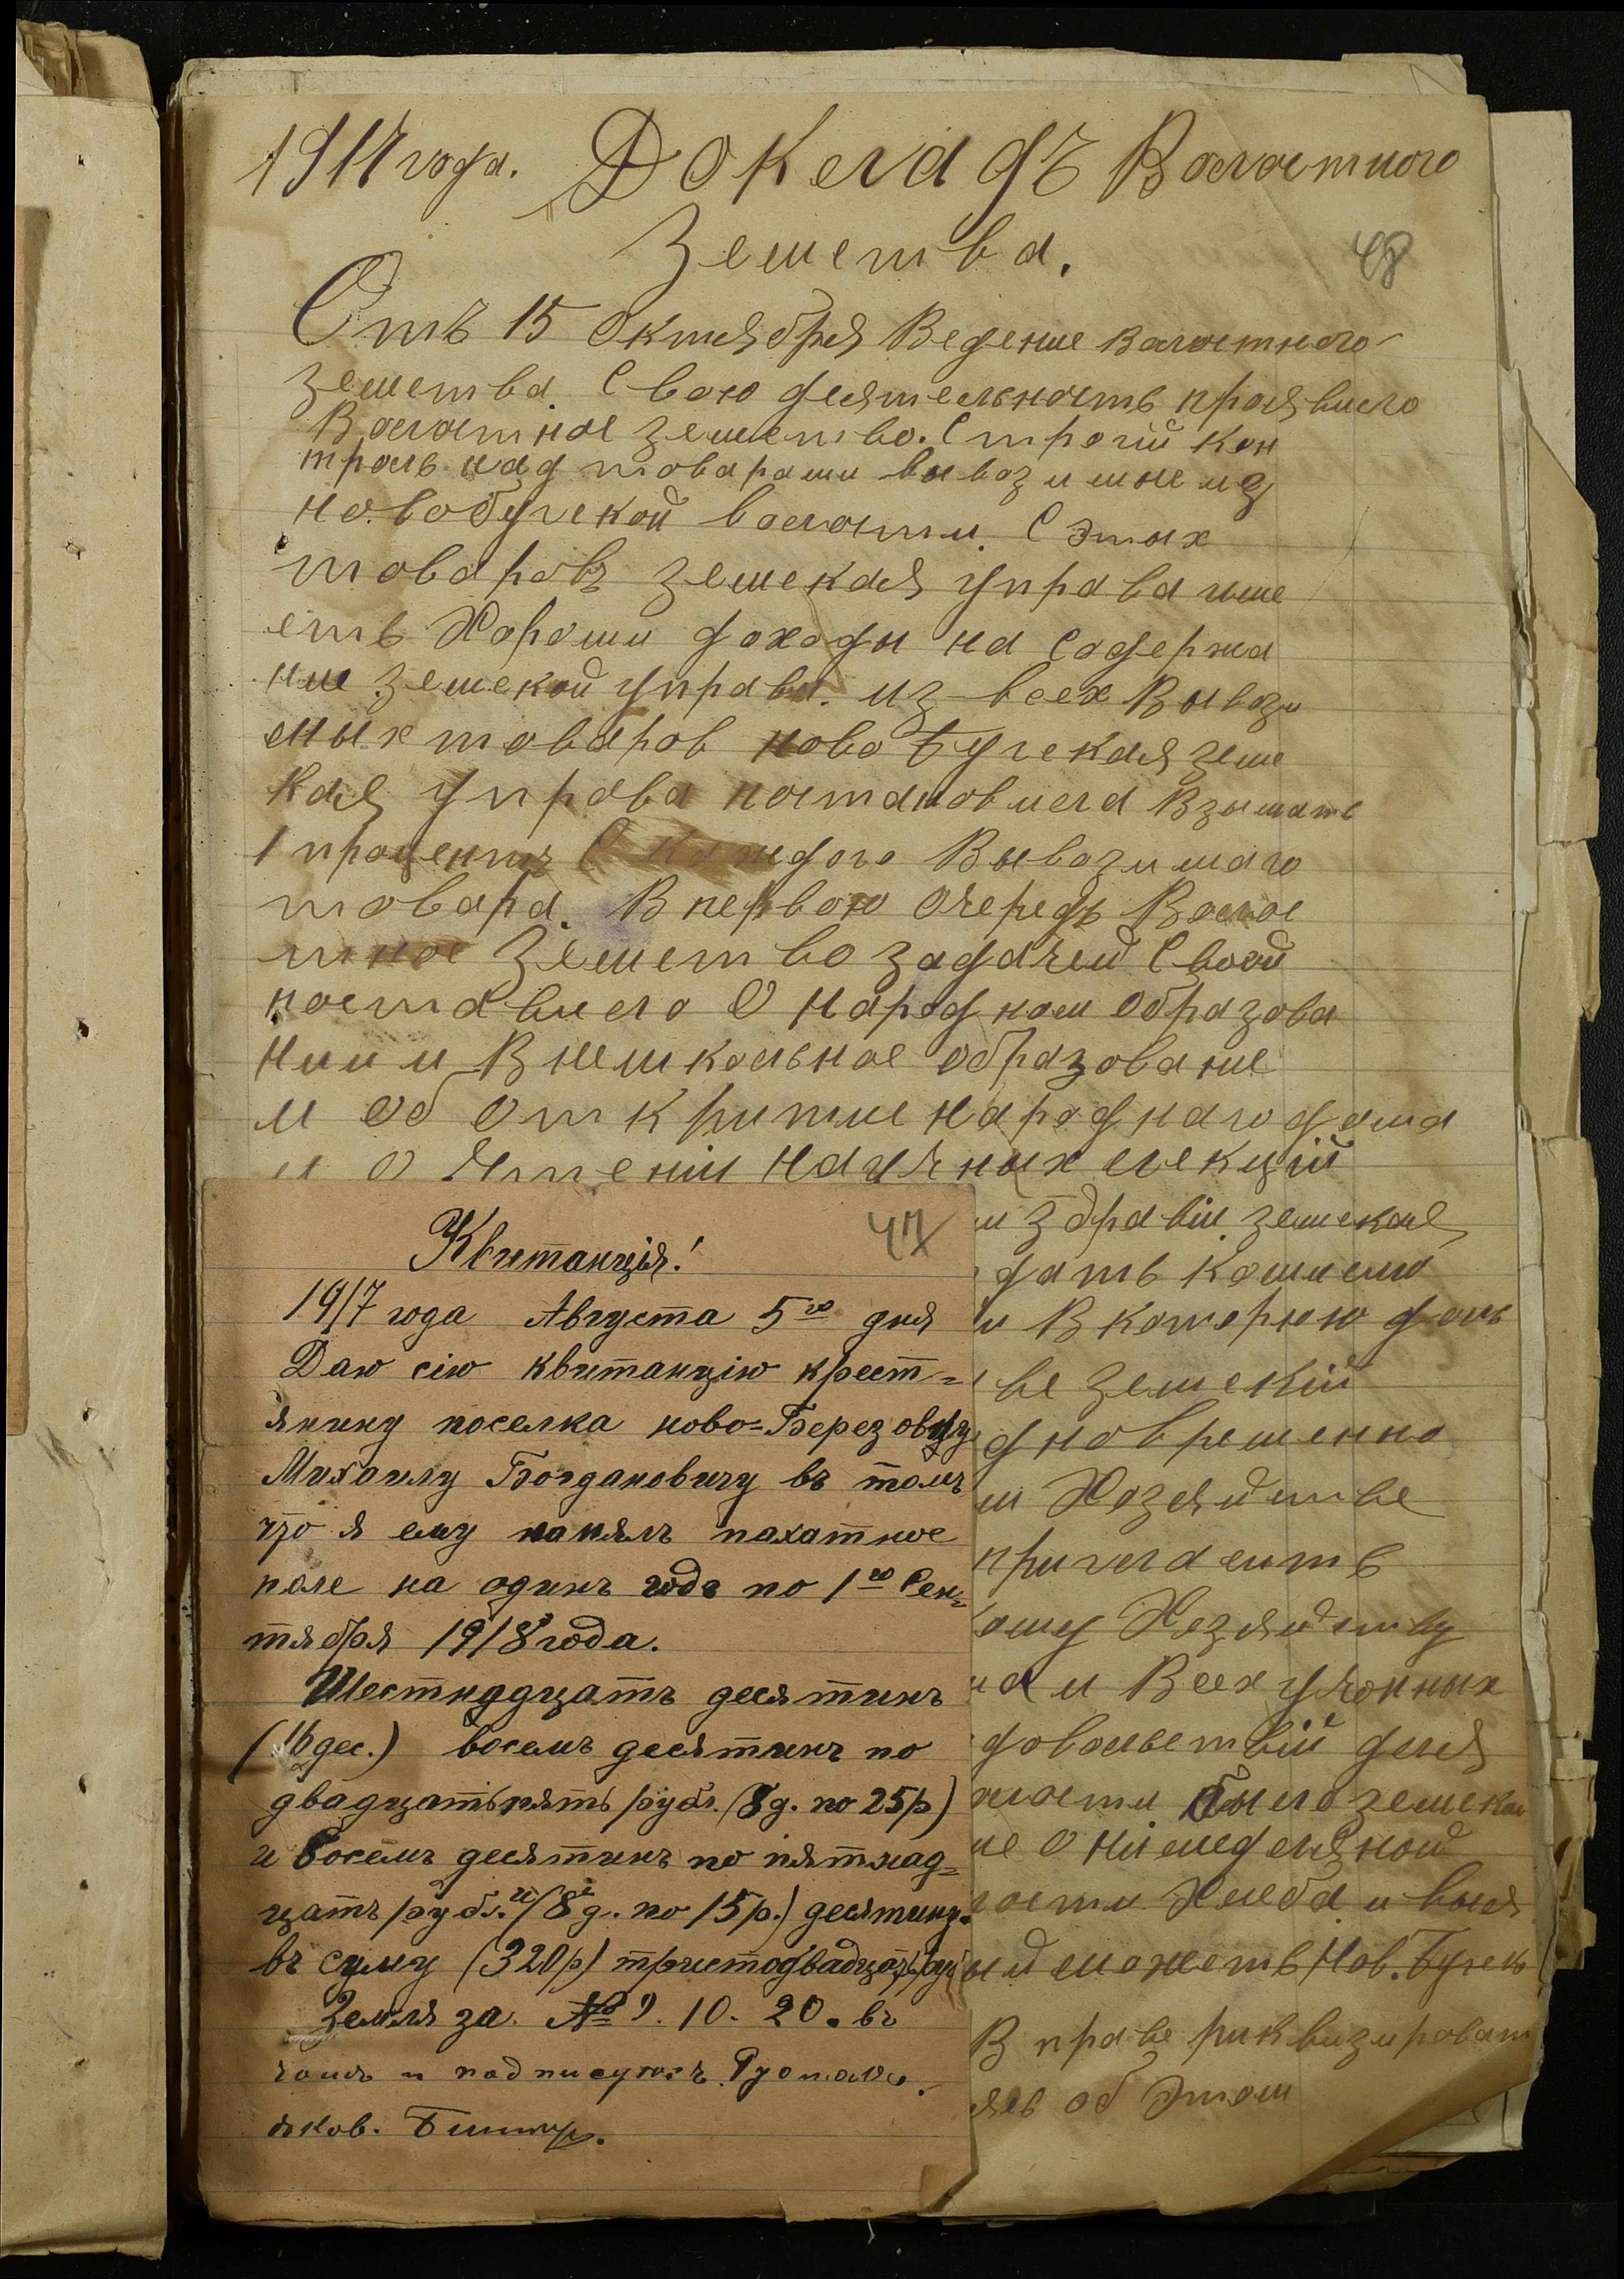 1917 года. Докладъ Волостного
Земства.
48
Отъ 15 Октября Ведение волостного
земства. Свою деятельность проявило
Волостное земство. Строгий кон
троль над товарами вывозимые из
новобугской волости. С этих
товаровъ земская управа име
етъ Хороши доходы на Содержа
ние земской управы. из всех Вывози
мых товаров ново Бугская земс
кая управа постановила Взымать
1 процентъ С каждого Вывозимаго
товара. В первою Очередь Волос
тное Земство задачей Своей
поставило О народном образова
нии и Внешкольное образование
и об открытие народнаго дома
и О Чтении научных лекций
и здравии земская
дать комисию
и В которую дол
ве земский
дновременно
и Хозяйстве
пригласить
ому Хозяйству
и Всех учонных
довольствий для
ности было земска
ие О немедленой
ости Хлеба и выя
ий можетъ Нов. Бугск
В праве риквизироват
яв об этом
Квитанція!
47
1917 года Августа 5го дня
Даю сію квитанцію крест=
янину поселка ново=Березовцу
Михаилу Богдановичу въ томъ
что я ему нанялъ пахатное
поле на одинъ годъ по 1го Сен=
тября 1918 года.
Шестнадцатъ десятинъ
(16 дес.) восемъ десятинъ по
двадцатьпять рубл. (8 д. по 25 р)
и восемъ десятинъ по пятнад=
цатъ рубл. (8 д. по 15 р.) десятину.
въ сумму (320 р) тристодвадцать руб
Земля за. № 9. 10. 20. въ
чомъ и подписуюсъ